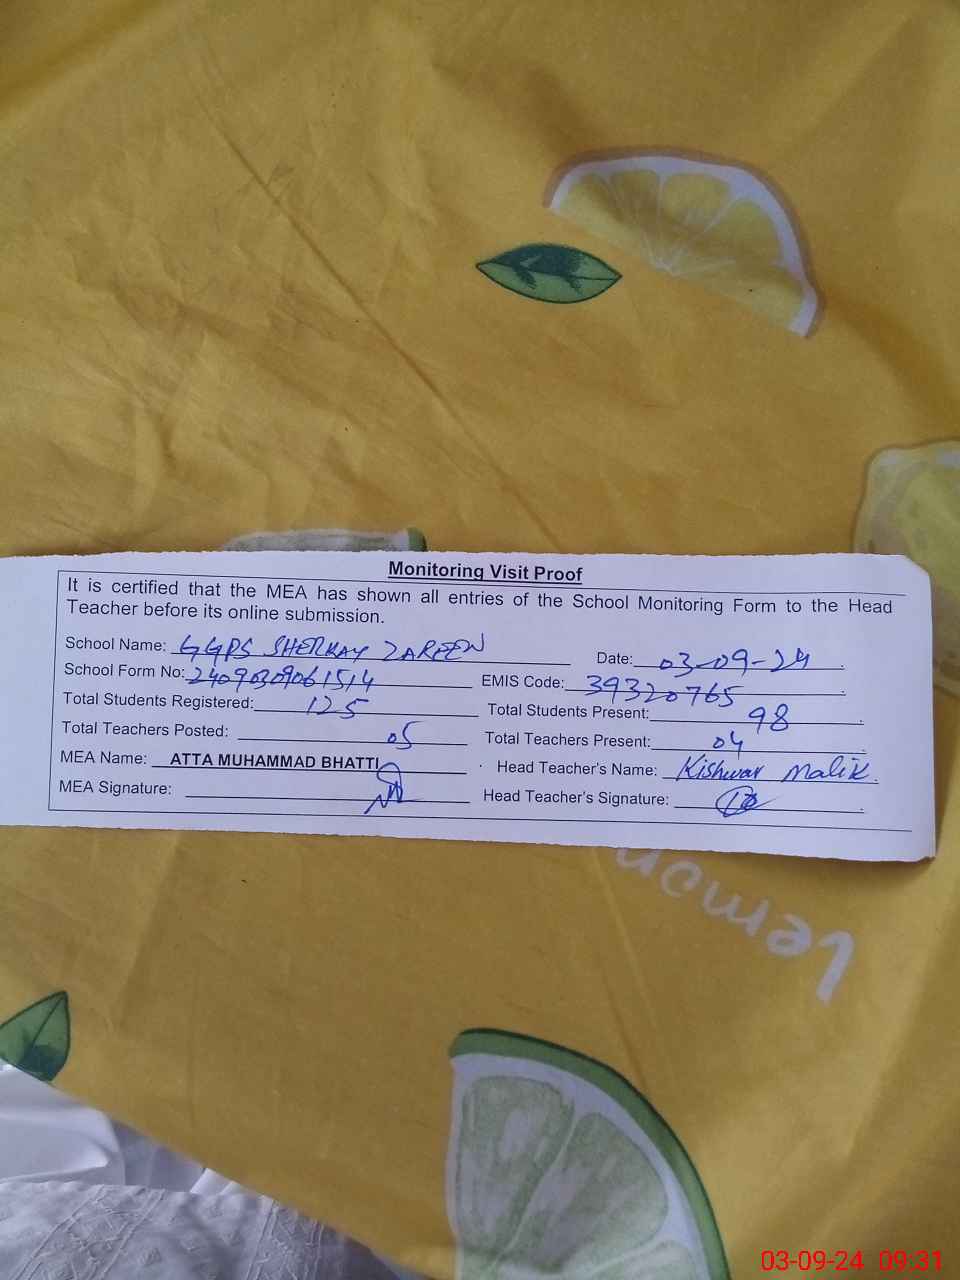 Monitoring Visit Proof
It is certified that the MEA has shown all entries of the School Monitoring Form to the Head
Teacher before its online submission.
School Name: GGPS SHERKAY ZAREEN Date: 03-09-24
School Form No: 24090309061514 EMIS Code: 39320765
Total Students Registered: 125 Total Students Present: 98
Total Teachers Posted: 05 Total Teachers Present: 04
MEA Name: ATTA MUHAMMAD BHATTI Head Teacher's Name: Kishwar Malik
MEA Signature: Head Teacher's Signature:
lemon
03-09-24 09:31